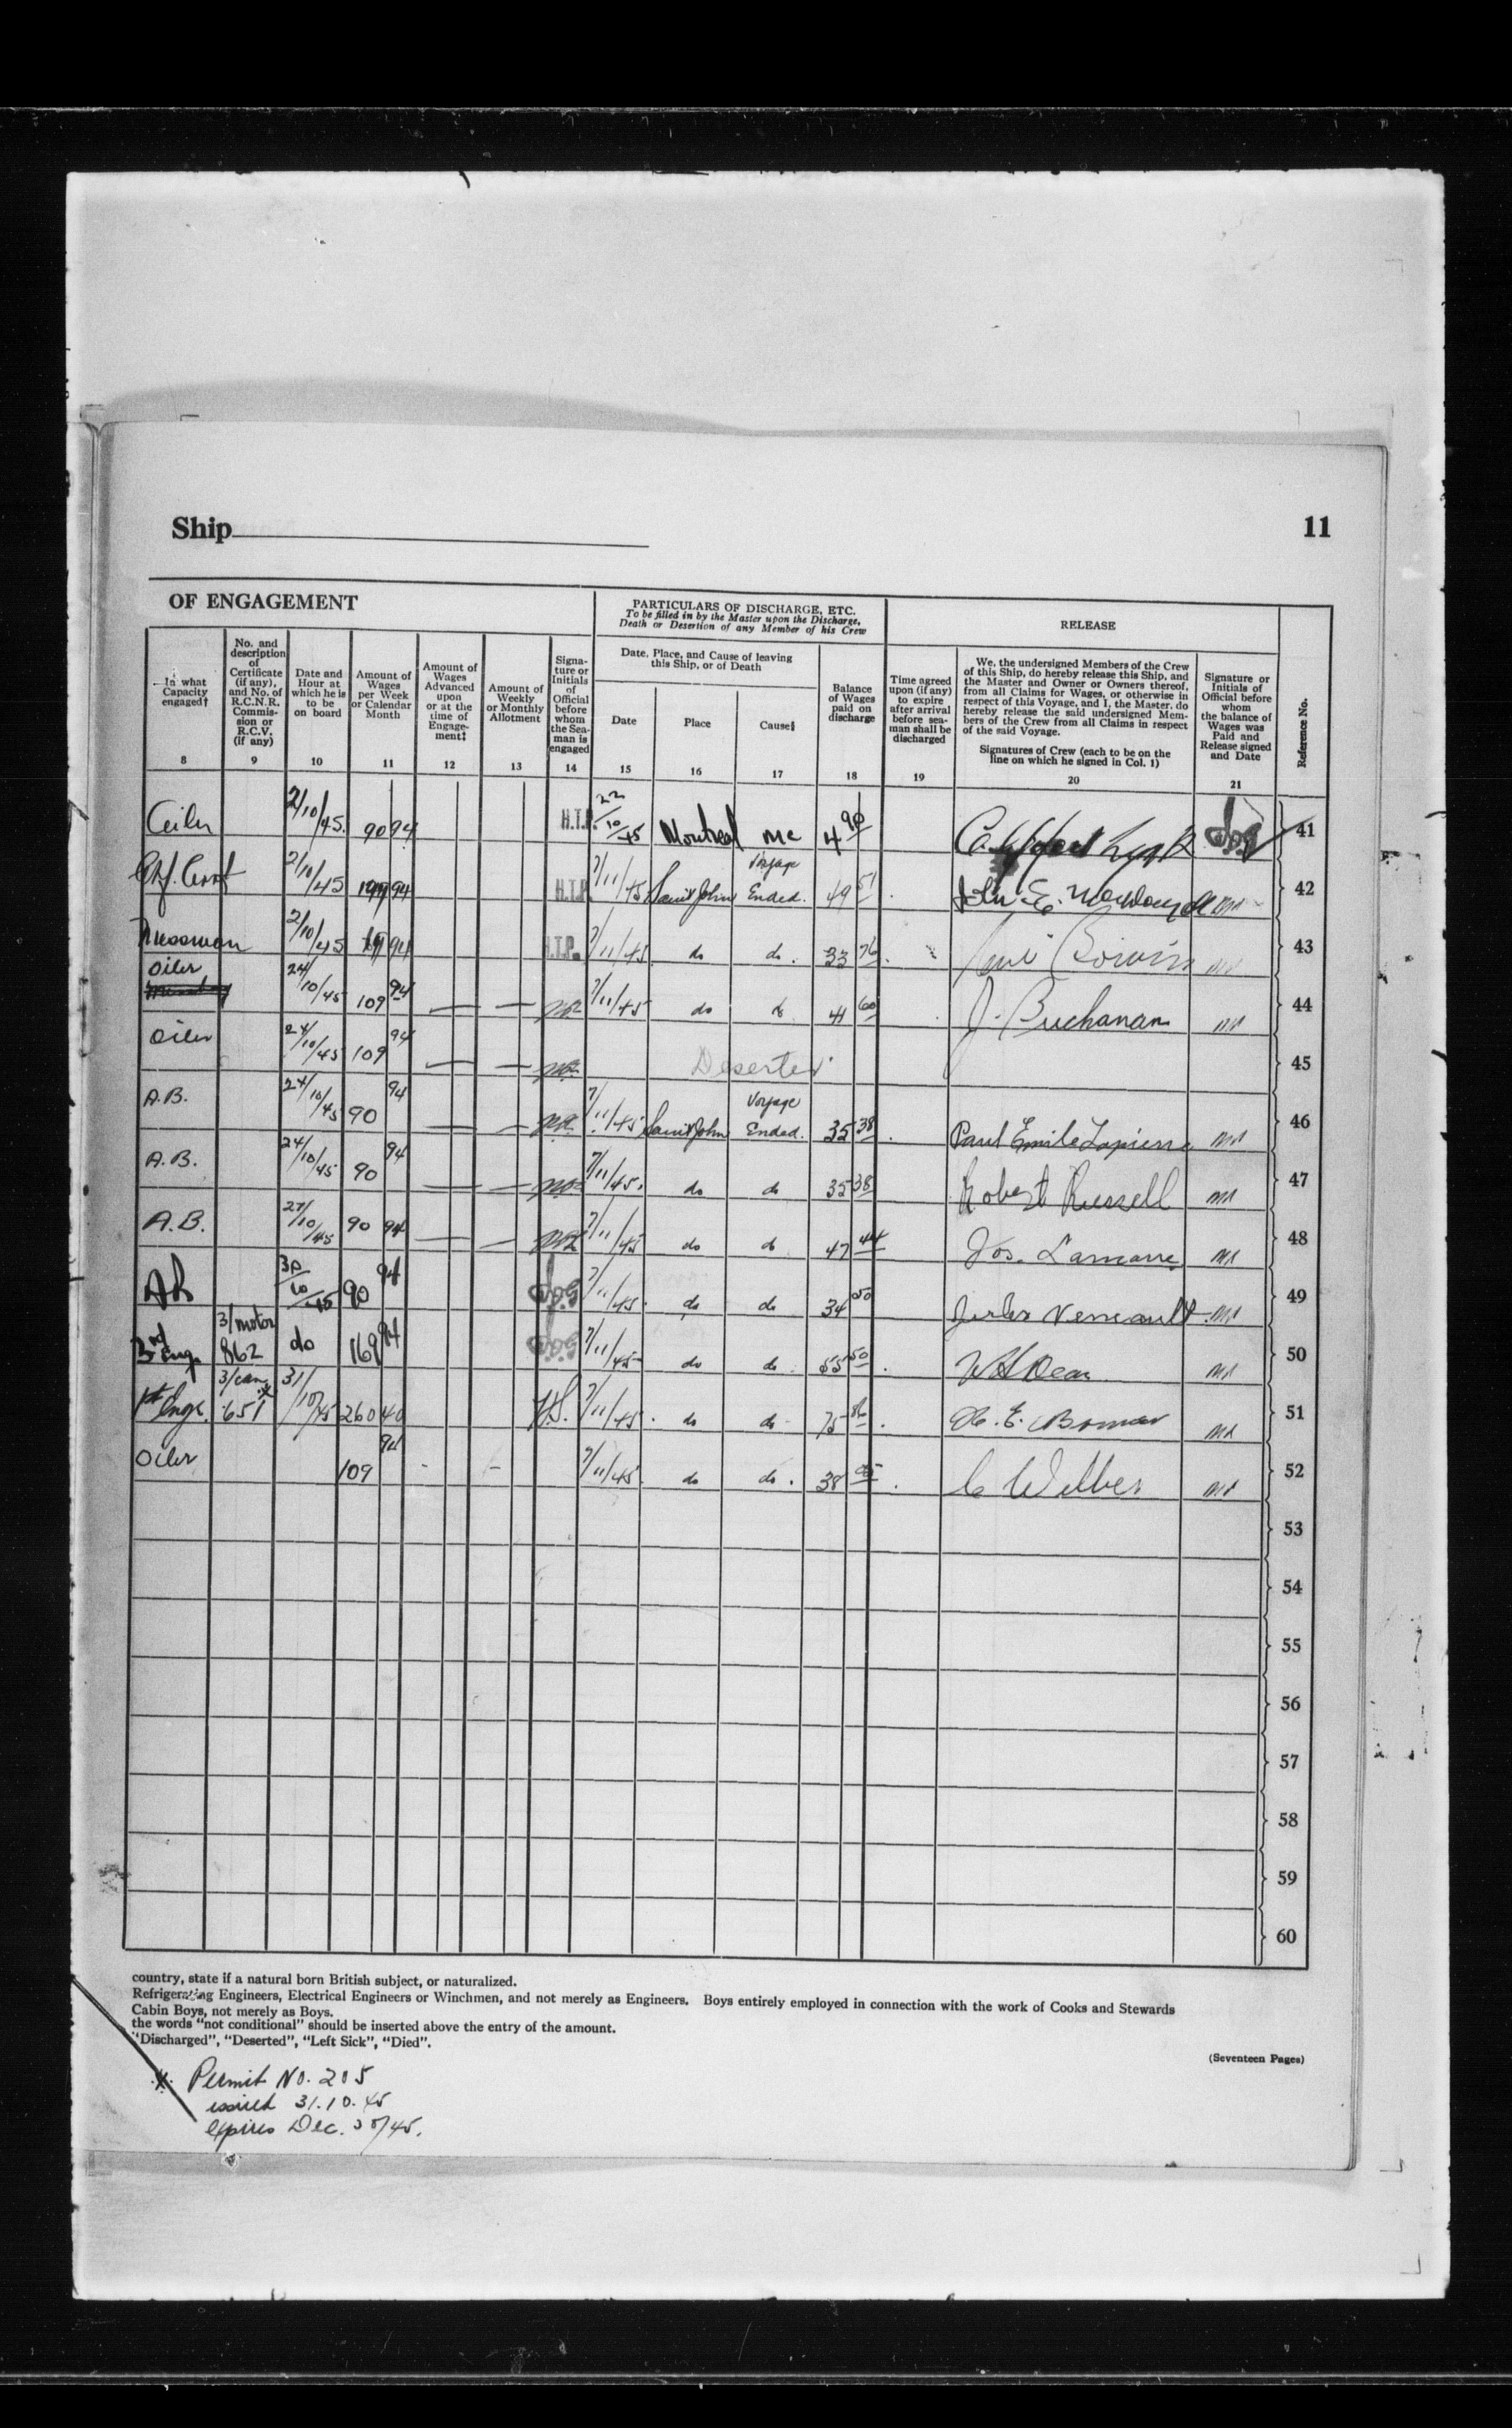 Ship
11
OF ENGAGEMENT
PARTICULARS OF DISCHARGE, ETC.
To be filled in by the Master upon the Discharge,
Death or Desertion of any Member of his Crew
RELEASE
In what
Capacity
engaged†
8
No. and
description
of
Certificate
(if any),
and No. of
R.C.N.R.
Commis-
sion or
R.C.V.
(if any)
9
Date and
Hour at
which he is
to be
on board
10
Amount of
Wages
per Week
or Calendar
Month
11
Amount of
Wages
Advanced
upon
or at the
time of
Engage-
ment‡
12
Amount of
Weekly
or Monthly
Allotment
13
Signa-
ture or
Initials
of
Official
before
whom
the Sea-
man is
engaged
14
Date, Place, and Cause of leaving
this Ship, or of Death
Date
15
Place
16
Cause§
17
Balance
of Wages
paid on
discharge
18
Time agreed
upon (if any)
to expire
after arrival
before sea-
man shall be
discharged
19
We, the undersigned Members of the Crew
of this Ship, do hereby release this Ship, and
the Master and Owner or Owners thereof,
from all Claims for Wages, or otherwise in
respect of this Voyage, and I, the Master, do
hereby release the said undersigned Mem-
bers of the Crew from all Claims in respect
of the said Voyage.
Signatures of Crew (each to be on the
line on which he signed in Col. 1)
20
Signature or
Initials of
Official before
whom
the balance of
Wages was
Paid and
Release signed
and Date
21
Reference No.
2/10/45 90 94 H.T.P. 22/10/45 Montreal mc 4 90 41
2/10/45 94 H.T.P. 7/11/45 Saint John Voyage Ended. 49 51 42
Messman 2/10/45 94 H.T.P. 7/11/45 do do. 33 76 43
Oiler 24/10/45 109 94 — — 7/11/45 do do 41 60 J. Buchanan 44
Oiler 24/10/45 109 94 — — Deserted 45
A.B. 24/10/45 90 94 — — 7/11/45 Saint John Voyage Ended. 35 38 Paul Emile Lapierre 46
A.B. 24/10/45 90 94 — — 7/11/45 do do 35 38 Robert Russell 47
A.B. 27/10/45 90 94 — — 7/11/45 do do 47 44 Jos. Lamarre 48
AB 30/10/45 90 94 7/11/45 do do 34 50 49
3rd Eng. 3/motor 862 do 169 94 7/11/45 do do 55 50 W H Dean 50
1st Engr. 3/can 651 31/10/45 260 40 7/11/45 do do 75 86 51
Oiler 109 94 - - 7/11/45 do do. 38 95 C Wilber 52
53
54
55
56
57
58
59
60
country, state if a natural born British subject, or naturalized.
Refrigerating Engineers, Electrical Engineers or Winchmen, and not merely as Engineers. Boys entirely employed in connection with the work of Cooks and Stewards
Cabin Boys, not merely as Boys.
the words "not conditional" should be inserted above the entry of the amount.
"Discharged", "Deserted", "Left Sick", "Died".
(Seventeen Pages)
Permit No. 205
issued 31.10.45
expires Dec. 30/45.